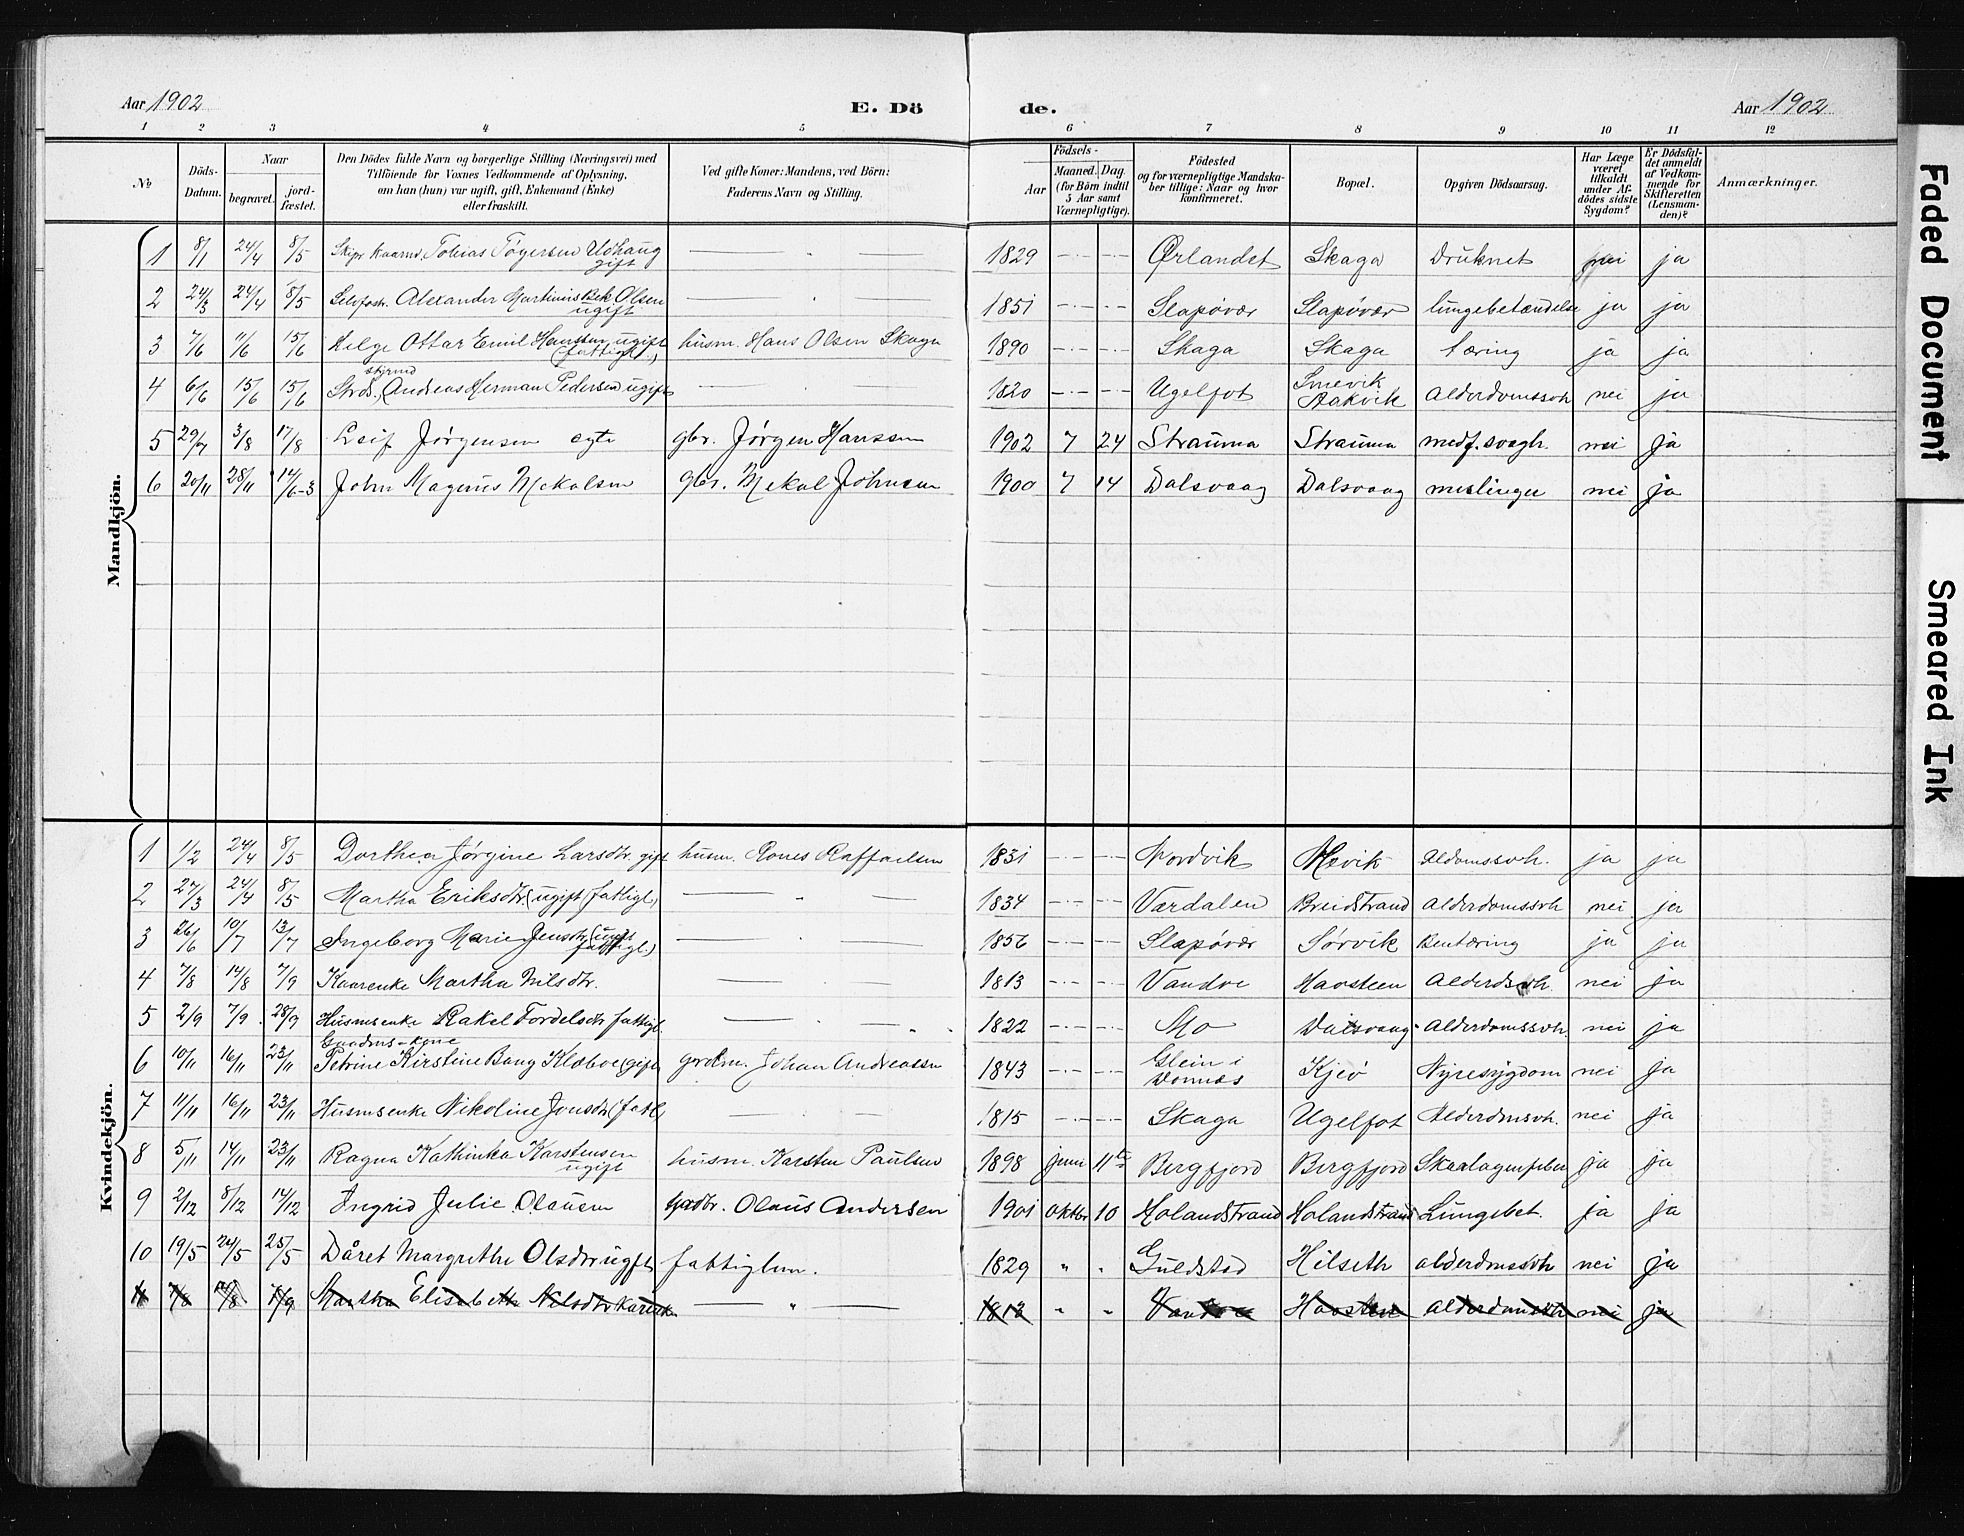 Aar 1902 E. Dö de. Aar 1902
1 2 3 4 5 6 7 8 9 10 11 12
No
Döds-Datum.
Naar
begravet.
jord-fæstet.
Den Dödes fulde Navn og borgerlige Stilling (Næringsvei) med
Tilföiende for Voxnes Vedkommende af Oplysning,
om han (hun) var ugift, gift, Enkemand (Enke)
eller fraskilt.
Ved gifte Koner: Mandens, ved Börn:
Faderens Navn og Stilling.
Födsels-
Aar
Maaned. Dag
(for Börn indtil
5 Aar samt
Værnepligtige).
Födested
og for værnepligtige Mandska-
ber tillige: Naar og hvor
konfirmeret.
Bopæl.
Opgiven Dödsaarsag.
Har Læge
været
tilkaldt
under Af-
dödes sidste
Sygdom?
Er Dödsfal-
det anmeldt
af Vedkom-
mende for
Skifteretten
(Lensman-
den)?
Anmærkninger.
Mandkjön.
1 8/1 24/4 8/5 Tobias Tøgersen Udhaug gift 1829 Ørlandet Skaga Druknet nei ja
2 24/3 24/4 8/5 Alexander Martinus Bek Olsen ugift 1851 Slapøvær Slapøvær lungebetændelse ja ja
3 7/6 11/6 15/6 Helge Ottar Emil Hanssen ugift (fattigl.) husm. Hans Olsen Skaga 1890 Skaga Skaga tæring ja ja
4 6/6 15/6 15/6 Andreas Herman Pedersen ugift 1820 Ugelfot Smevik Aakvik Alderdomssvh nei ja
5 29/7 3/8 17/8 Leif Jørgensen egte gbr. Jørgen Hanssen 1902 7 24 Strauma Strauma medf. svagh. nei ja
6 20/11 28/11 14/6-3 John Magnus Mekalsen gbr. Mekal Johnsen 1900 7 14 Dalsvaag Dalsvaag meslinger nei ja
Kvindekjön.
1 1/2 24/4 8/5 Dorthea Jørgine Larsdtr. gift husm. Rones Raffaelsen 1831 Nordvik Mevik Aldomssvh. ja ja
2 27/3 24/4 8/5 Martha Eriksdtr (ugift fattigl.) 1834 Værdalen Breidstrand Alderdomssvh nei ja
3 26/6 10/7 13/7 Ingeborg Marie Jensdtr (ugift fattigl.) 1856 Slapøvær Sørvik Bentæring ja ja
4 7/8 14/8 7/9 Kaarenke Martha Nilsdtr. 1813 Vandve Havsteen Alderdssvh nei ja
5 2/9 7/9 28/9 Husmsenke Rakel Tordelsdtr fattigl. 1822 Mo Dalsvaag Alderdomssvh nei ja
Gaardms-kone
6 10/11 16/11 23/11 Petrine Kirstine Bang Klæboe (gift) grdm. Johan Andreassen 1843 Glein i Dønnæs Kjeø Nyresygdom nei ja
7 11/11 16/11 23/11 Husmsenke Nikoline Jonsdtr (fatl) 1815 Skaga Ugelfot Alderdmsvh. nei ja
8 5/11 14/11 23/11 Ragna Kathinka Karstensen ugift husm. Karsten Paulsen 1898 juni 11te Bergfjord Bergfjord Skarlagensfeber ja ja
9 2/12 8/12 14/12 Ingrid Julie Olausen grdbr. Olaus Andersen 1901 oktbr 10 Holandstrand Holandstrand Lungebet. ja ja
10 19/5 24/5 25/5 Dåret Margrethe Olsdtr ugift fattiglem. 1829 " " Guldstad Hilseth alderdmssvh nei ja
11 7/8 14/8 7/9 Martha Elisabeth Nilsdtr Karenk " 1813 " " Vandve Havsteen alderdomssvh nei ja
Faded Document
Smeared Ink